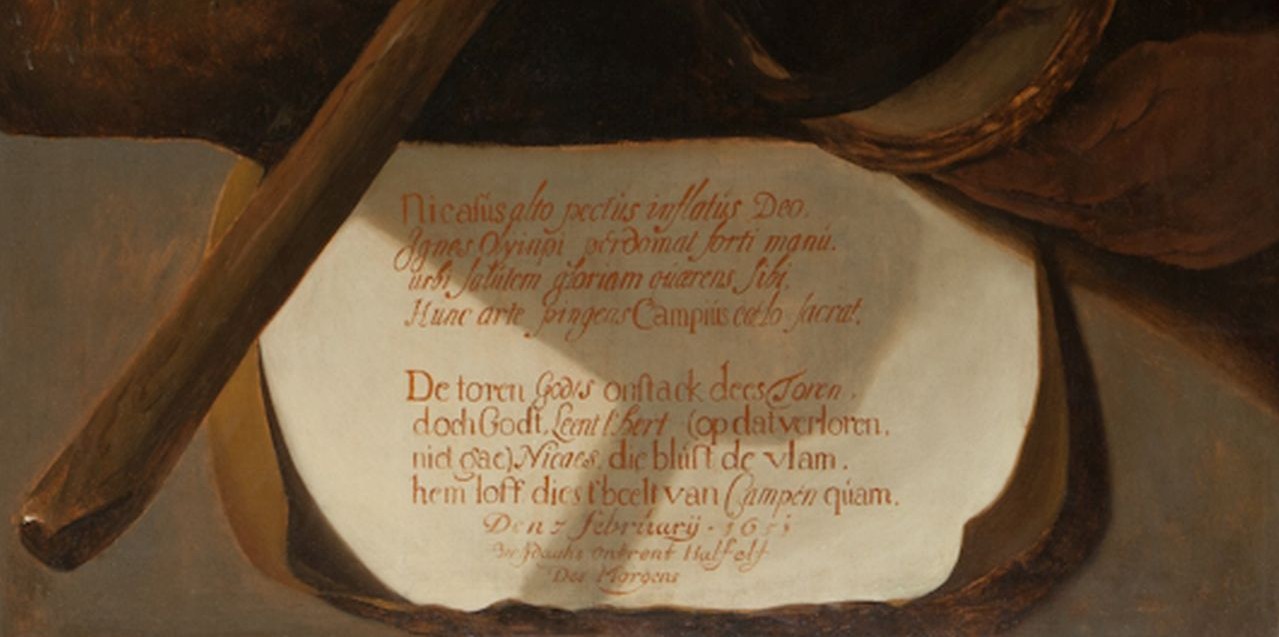 Nicasius alto pectus inflatus Deo.
Ignes Olyinpi perdomat forti manu.
urbi salutem gloriam quærens sibi.
Hunc arte pingens Campius cœlo sacrat.
De toren Godts onstack dees Toren.
doch Godt. Leent t'hert (op dat verloren.
niet gae) Nicaes. die blust de vlam.
hem loff dies t'beelt van Campen quam.
Den 7 februarij · 1651
ontrent Halfelf
Des Morgens